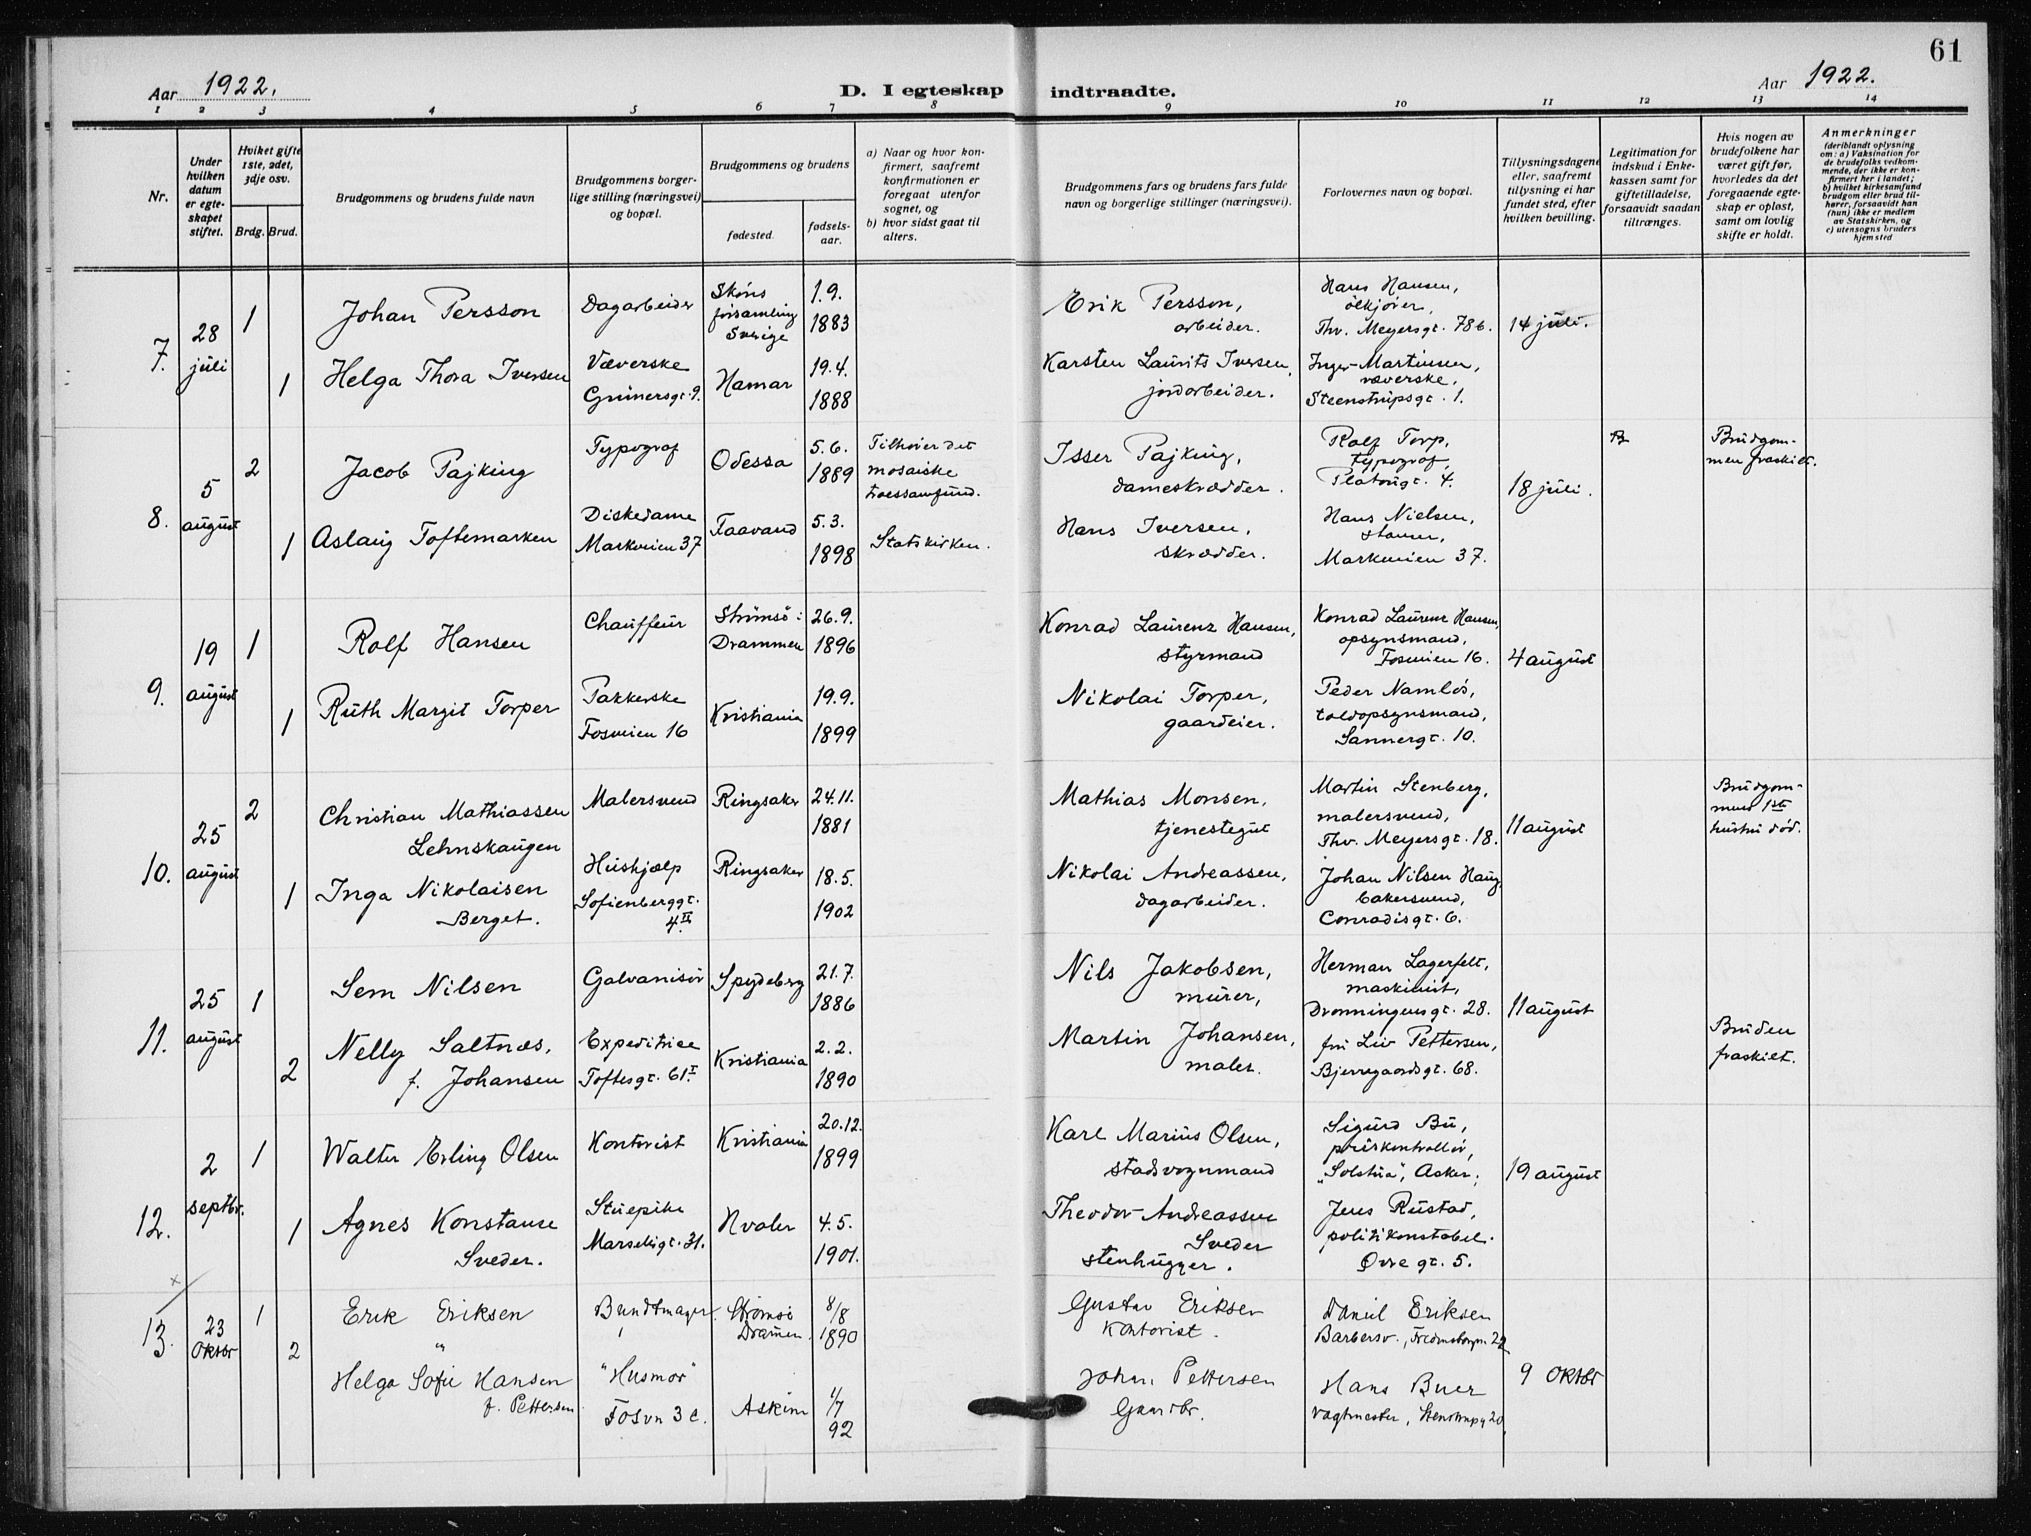 61
Aar 1922.
D. I egteskap indtraadte.
Aar 1922.
1 2 3 4 5 6 7 8 9 10 11 12 13 14
Nr.
Under hvilken datum er egteskapet stiftet.
Hviket gifte 1ste, 2det, 3dje osv.
Brdg. Brud.
Brudgommens og brudens fulde navn
Brudgommens borgerlige stilling (næringsvei) og bopæl.
Brudgommens og brudens
fødested.
fødselsaar.
a) Naar og hvor konfirmert, saafremt konfirmationen er foregaat utenfor sognet, og
b) hvor sidst gaat til alters.
Brudgommens fars og brudens fars fulde navn og borgerlige stillinger (næringsvei).
Forlovernes navn og bopæl.
Tillysningsdagene eller, saafremt tillysning ei har fundet sted, efter hvilken bevilling.
Legitimation for indskud i Enkekassen samt for giftetilladelse, forsaavidt saadan tiltrænges.
Hvis nogen av brudefolkene har været gift før, hvorledes da det foregaaende egteskap er opløst, samt om lovlig skifte er holdt.
Anmerkninger
(deriblandt oplysning om: a) Vaksination for de brudefolks vedkommende, der ikke er konfirmert her i landet; b) hvilket kirkesamfund brudgom eller brud tilhører, forsaavidt han (hun) ikke er medlem av Statskirken, og c) utensogns bruders hjemsted
7. 28 juli
1 Johan Persson
Dagarbeider
Sköns församling Sverige
1.9. 1883
Erik Persson, arbeider.
Hans Hansen, ölkjører, Thv. Meyersgt. 78b.
14 juli.
1 Helga Thora Iversen
Væverske Grünersgt. 9.
Hamar
19.4. 1888
Karsten Laurits Iversen, jordarbeider.
Inger Martinsen, væverske, Steenstrupsgt. 1.
8. 5 august
2 Jacob Pajking
Typograf
Odessa
5.6. 1889
Tilhører det mosaiske troessamfund.
Isser Pajking, dameskrædder.
Rolf Torp, typograf, Platousgt. 4.
18 juli.
B
Brudgommen fraskilt.
1 Aslaug Toftemarken
Diskedame Markveien 37
Faavand
5.3. 1898
Statskirken.
Hans Iversen, skrædder.
Hans Nielsen, Markveien 37.
9. 19 august
1 Rolf Hansen
Chauffeur
Strømsö i Drammen
26.9. 1896
Konrad Laurenz Hansen, styrmand
Konrad Laurenz Hansen, opsynsmand, Fosveien 16.
4 august
1 Ruth Margit Torper
Pakkerske Fosveien 16
Kristiania
19.9. 1899
Nikolai Torper, gaardeier.
Peder Namløs, toldopsynsmand, Sannergt. 10.
10. 25 august
2 Christian Mathiassen Lehnskaugen
Malersvend
Ringsaker
24.11. 1881
Mathias Monsen, tjenestegut
Martin Stenberg, malersvend, Thv. Meyersgt. 18.
11 august
Brudgommens 1ste hustru död.
1 Inga Nikolaisen Berget.
Hushjælp Sofienberggt. 4 II
Ringsaker
18.5. 1902
Nikolai Andreassen, dagarbeider.
Johan Nilsen Haug, bakersvend, Conradisgt. 6.
11. 25 august
1 Sem Nilsen
Galvanisør
Spydeberg
21.7. 1886
Nils Jakobsen, murer,
Herman Lagerfelt, maskinist, Dronningensgt. 28.
11 august
2 Nelly Saltnæs, f. Johansen
Expeditrice Toftesgt. 61 I
Kristiania
2.2. 1890
Martin Johansen, maler.
fru Liv Pettersen, Bjerregaardsgt. 68.
Bruden fraskilt.
12. 2 septbr.
1 Walter Erling Olsen
Kontorist
Kristiania
20.12. 1899
Karl Marius Olsen, stadsvognmand
Sigurd Bu, priskontrollør, "Solstua", Asker,
19 august
1 Agnes Konstanse Sveder.
Stuepike Marselisgt. 31.
Hvaler
4.5. 1901.
Theodor Andreassen Sveder stenhugger.
Jens Rustad, politikonstabel. Övre gt. 5.
x
13. 23 Oktbr
1 Erik Eriksen
Bundtmager
Strømsö Dramen.
8/8 1890
Gustav Eriksen Kontorist.
Daniel Eriksen Barbersv., 22
9 Oktbr
2 Helga Sofie Hansen f. Pettersen
"Husmor" Fosvn 3 c.
Askim
1/7 92
Johan Pettersen Gaardbr.
Hans Buer Vagtmester, 20,